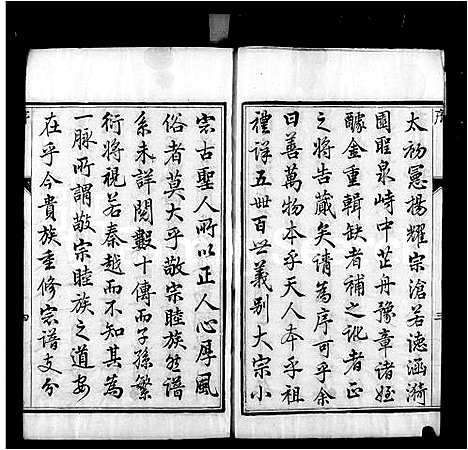 序
三
太初憲揚耀宗滄若德涵漪
園聖泉峙中芷舟豫章諸姪
醵金重輯缺者補之訛者正
之將告蕆矣請為序可乎余
曰善萬物本乎天人本乎祖
禮詳五世百世義別大宗小
宗古聖人所以正人心厚風
俗者莫大乎敬宗睦族然譜
系未詳閱數十傳而子孫繁
衍將視若秦越而不知其為
一脈所謂敬宗睦族之道安
在乎今貴族重修宗譜支分
四